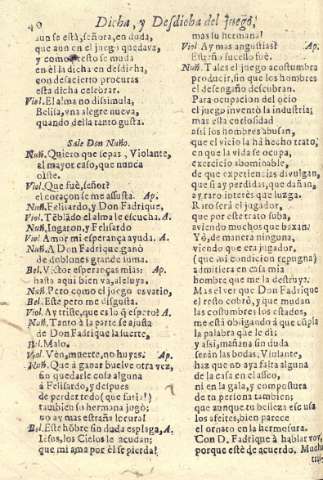 40 Dicha, y Desdicha del juego,
aun se està, señora, en duda,
que aun en el juego quedava,
y como esto se muda
en èl la dicha en desdicha,
con desacierto procuras
esta dicha celebrar.
Viol. El alma no dissimula,
Belisa, vna alegre nueva,
quando della tanto gusta.
Sale Don Nuño.
Nuñ. Quiero que sepas, Violante,
al mayor caso, que nunca
oiste.
Viol. Que fuè, señor?
el coraçon se me assusta. Ap.
Nuñ. Felisardo, y Don Fadrique,
Viol. Tēblādo el alma le escucha. A.
Nuñ. Iugaron, y Felisardo
Viol. Amor mi esperança ayuda. A.
Nuñ. A Don Fadrique ganò
de doblones grande suma.
Bel. Victor esperanças mias: Ap.
hasta aqui bien va, aleluya.
Nuñ. Pero como el juego es vario,
Bel. Este pero me disgusta.
Viol. Ay triste, que es lo q̃ espero? A.
Nuñ. Tanto à la parte se ajusta
de Don Fadrique la suerte,
Bel. Malo.
Viol. Vèn, muerte, no huyes. Ap.
Nuñ. Que à ganar buelve otra vez,
sin quedarle cosa alguna
à Felisardo, y despues
de perder todo (que furia!)
tambien su hermana jugò:
vo ay mas estraña locura!
Bel. Este hōbre sin duda esplaga, A.
Iesus, los Cielos le acudan;
que mi ama por èl se pierda!
mas su hermana!
Viol. Ay mas angustias? Ap.
Bel. Estraño sucesso fuè.
Nuñ. Tales el juego acostumbra
producir, sin que los hombres
el desengaño descubran.
Para ocupacion del ocio
el juego inventò la industria;
mas ella curiosidad
assi los hombres abusan,
que el vicio la hà hecho trato,
en que la vida se ocupa,
exercicio abominable,
de que experiencias divulgan,
que si ay perdidas, que dañan,
ay raro interès que luzga.
Raro serà el jugador,
que por este trato suba,
aviendo muchos que baxan:
Yo, de manera ninguna,
viendo que era jugador,
(que mi condicion repugna)
admitiera en casa mia
hombre que me la destruya.
Mas el ver que Don Fadrique
el resto cobrò, y que mudan
las costumbres los estados,
me està obligando à que cūpla
la palabra que le dì:
y assi, mañana sin duda
seràn las bodas, Violante,
haz que no aya falta alguna
de la casa en el asseo,
ni en la gala, y compostura
de tu persona tambien;
que aunque tu belleza escusa
los afeites, bien parece
el ornato en la hermosura.
Con D. Fadrique à hablar voy,
porque estè de acuerdo. Mucha